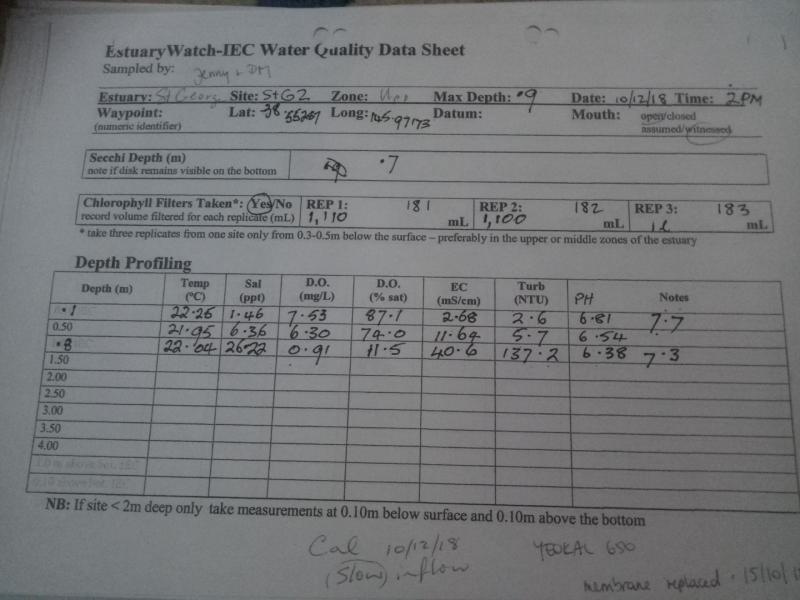 EstuaryWatch-IEC Water Quality Data Sheet
Sampled by: Jenny + DM
Estuary: St Georg Site: StG2 Zone: Upp Max Depth: .9 Date: 10/12/18 Time: 2PM
Waypoint: Lat: -38 55267 Long: 145.97173 Datum: Mouth: open/closed
(numeric identifier) assumed/witnessed
Secchi Depth (m) .7
note if disk remains visible on the bottom
Chlorophyll Filters Taken*: Yes/No REP 1: 181 REP 2: 182 REP 3: 183
record volume filtered for each replicate (mL) 1,110 mL 1,100 mL 1L mL
* take three replicates from one site only from 0.3-0.5m below the surface – preferably in the upper or middle zones of the estuary
Depth Profiling
Depth (m) Temp (°C) Sal (ppt) D.O. (mg/L) D.O. (% sat) EC (mS/cm) Turb (NTU) PH Notes
.1 22.26 1.46 7.53 87.1 2.68 2.6 6.81 7.7
0.50 21.95 6.36 6.30 74.0 11.64 5.7 6.54
.8 22.04 26.22 0.91 11.5 40.6 137.2 6.38 7.3
1.50
2.00
2.50
3.00
3.50
4.00
1.0 m above bot. IEC
0.10 above bot. IEC
NB: If site < 2m deep only take measurements at 0.10m below surface and 0.10m above the bottom
Cal 10/12/18 YEOKAL 650
(Slow) inflow
membrane replaced . 15/10/1